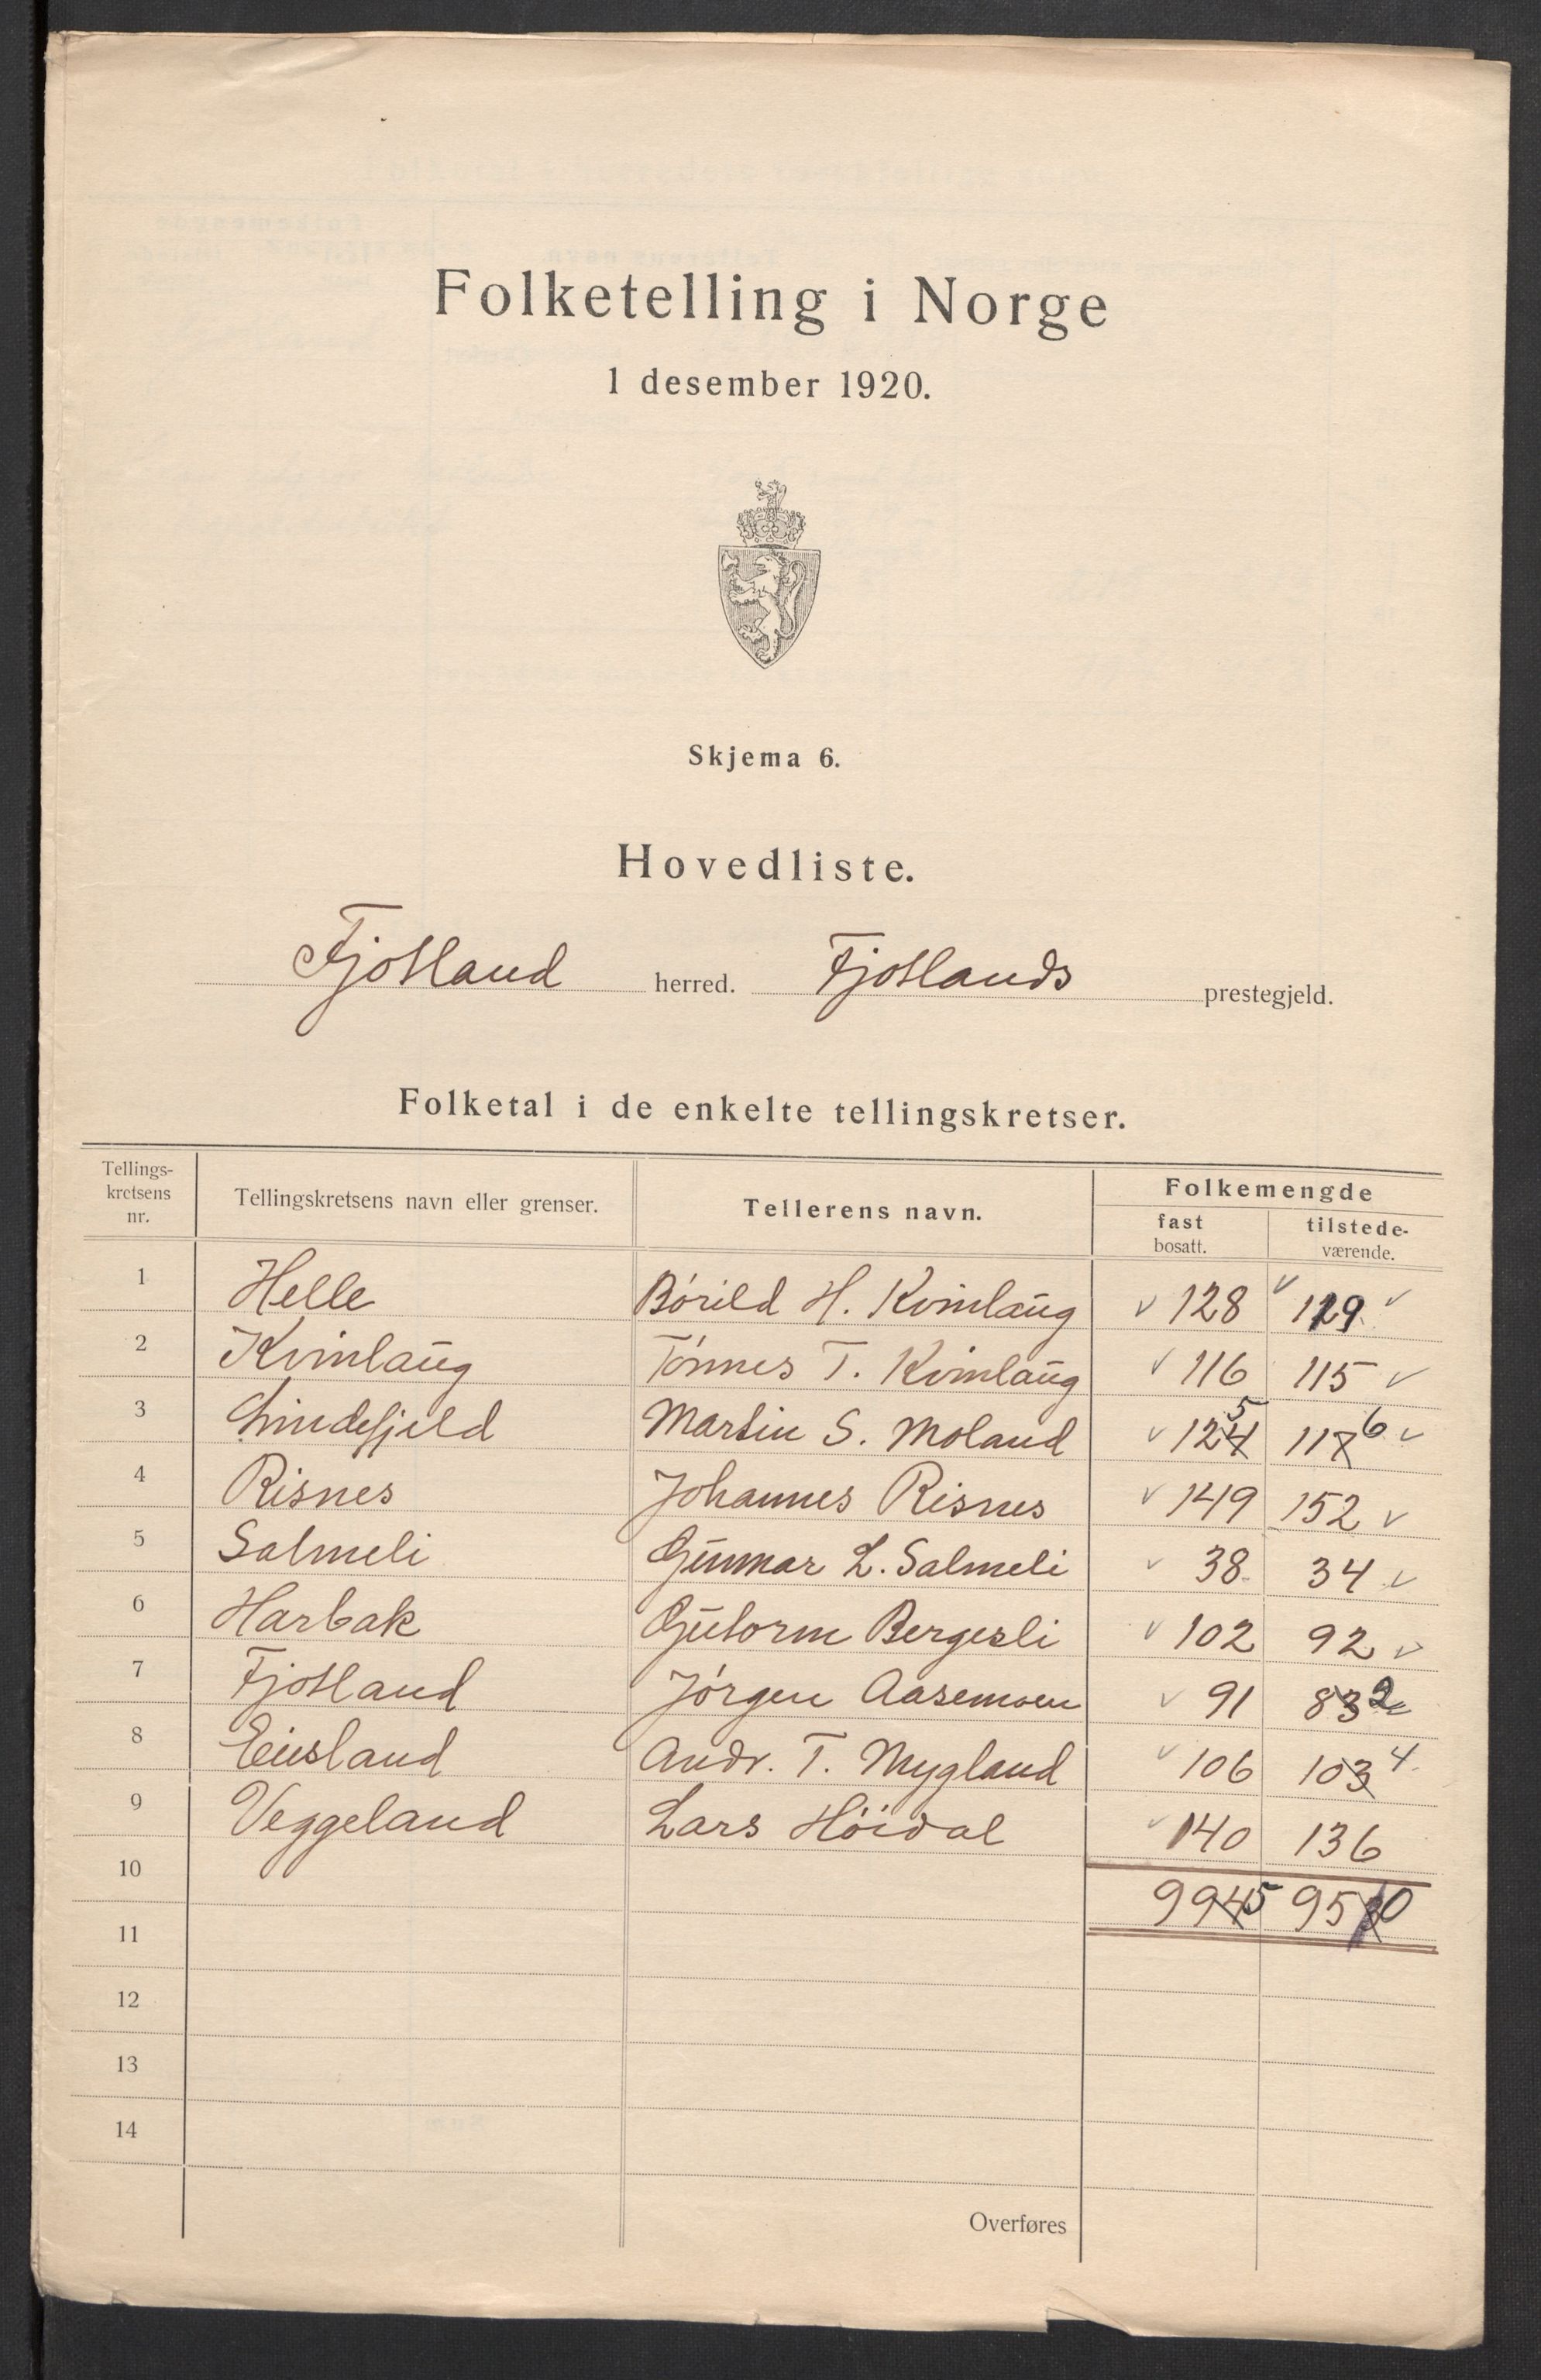 Folketelling i Norge
1 desember 1920.
Skjema 6.
Hovedliste.
Fjotland herred. Fjotlands prestegjeld.
Folketal i de enkelte tellingskretser.
Tellings-
kretsens
nr.
Tellingskretsens navn eller grenser.
Tellerens navn.
Folkemengde
fast
bosatt.
tilstede-
værende.
1 Helle Bórild H. Kvinlaūg 128 119
2 Kvinlaūg Tónnes T. Kvinlaūg 116 115
3 Lindefjeld Martin S. Moland 124 5 117 6
4 Risnes Johannes Risnes 149 152
5 Salmeli Gūnnar L. Salmeli 38 34
6 Harbak Gūtorm Bergesli 102 92
7 Fjotland Jórgen Aasemoen 91 83 2
8 Eiesland Andr. T. Mygland 106 103 4
9 Veggeland Lars Höidal 140 136
10 994 5 950
11
12
13
14
Overføres